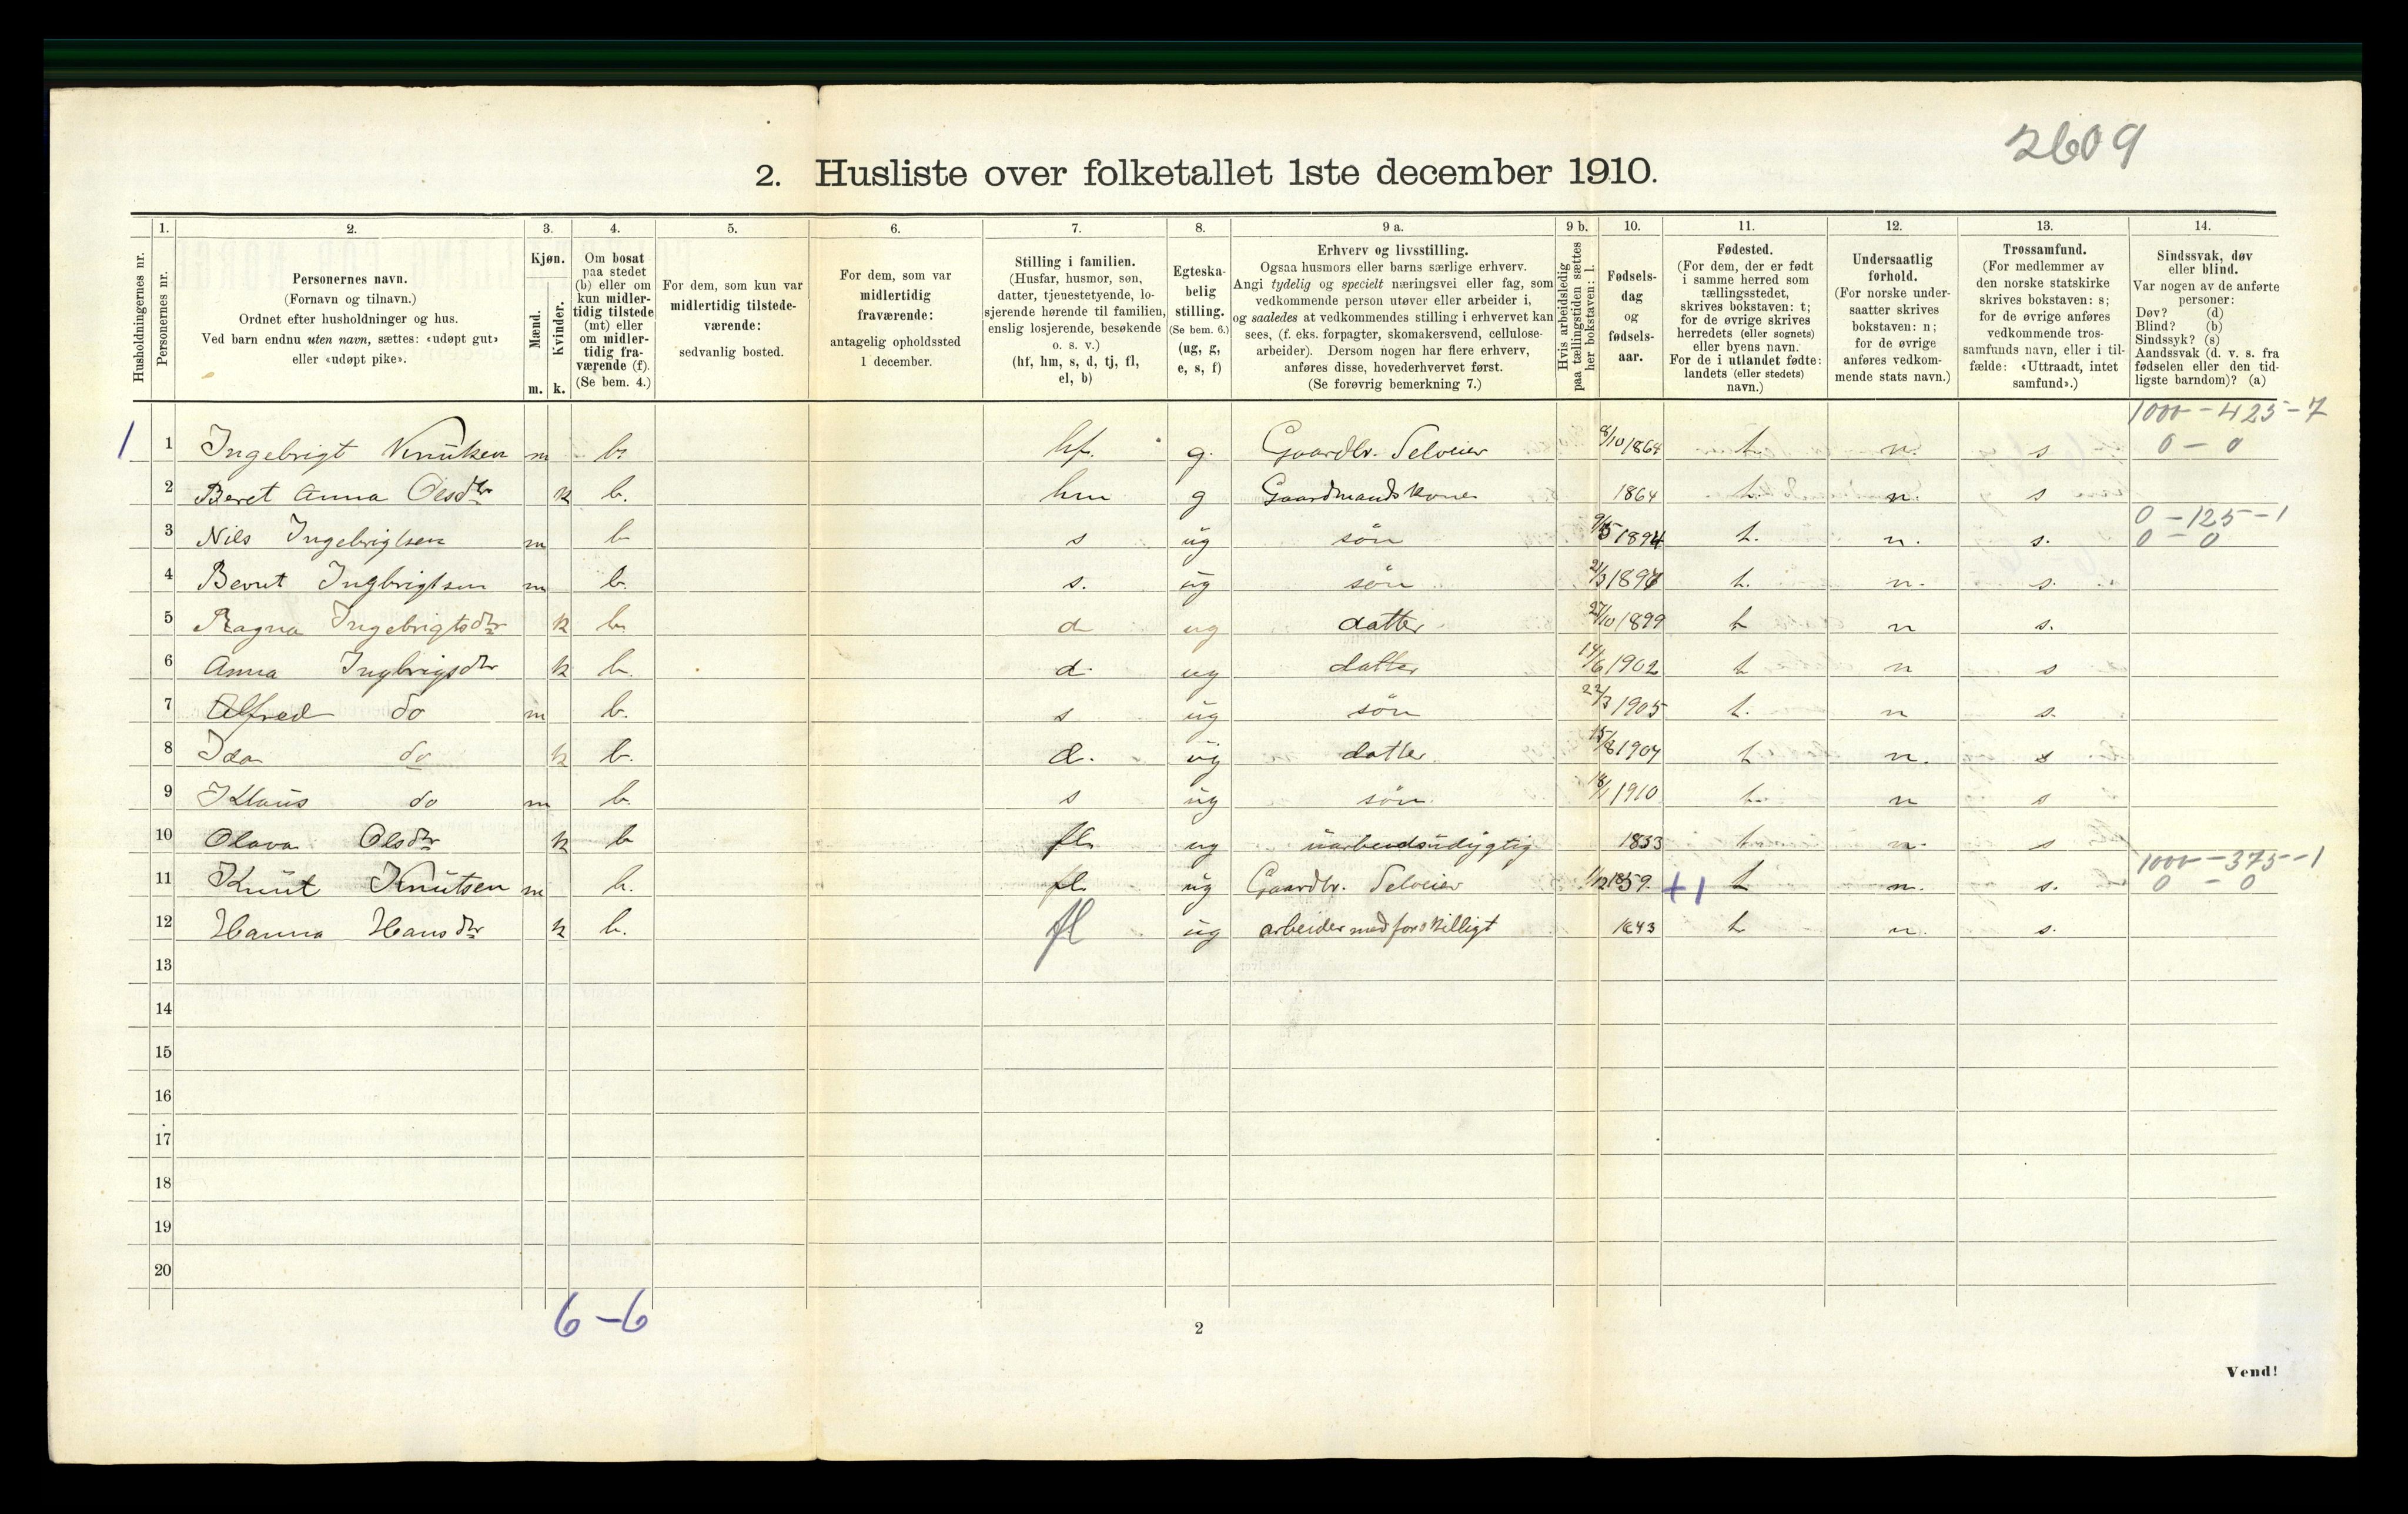 2609
2. Husliste over folketallet 1ste december 1910.
1. 2. 3. 4. 5. 6. 7. 8. 9 a. 9 b. 10. 11. 12. 13. 14.
Husholdningernes nr.
Personernes nr.
Personernes navn.
(Fornavn og tilnavn.)
Ordnet efter husholdninger og hus.
Ved barn endnu uten navn, sættes: «udøpt gut»
eller «udøpt pike».
Kjøn.
Mænd.
Kvinder.
m. k.
Om bosat
paa stedet
(b) eller om
kun midler-
tidig tilstede
(mt) eller
om midler-
tidig fra-
værende (f).
(Se bem. 4.)
For dem, som kun var
midlertidig tilstede-
værende:
sedvanlig bosted.
For dem, som var
midlertidig
fraværende:
antagelig opholdssted
1 december.
Stilling i familien.
(Husfar, husmor, søn,
datter, tjenestetyende, lo-
sjerende hørende til familien,
enslig losjerende, besøkende
o. s. v.)
(hf, hm, s, d, tj, fl,
el, b)
Egteska-
belig
stilling.
(Se bem. 6.)
(ug, g,
e, s, f)
Erhverv og livsstilling.
Ogsaa husmors eller barns særlige erhverv.
Angi tydelig og specielt næringsvei eller fag, som
vedkommende person utøver eller arbeider i,
og saaledes at vedkommendes stilling i erhvervet kan
sees, (f. eks. forpagter, skomakersvend, cellulose-
arbeider). Dersom nogen har flere erhverv,
anføres disse, hovederhvervet først.
(Se forøvrig bemerkning 7.)
Hvis arbeidsledig
paa tællingstiden sættes
her bokstaven: l.
Fødsels-
dag
og
fødsels-
aar.
Fødested.
(For dem, der er født
i samme herred som
tællingsstedet,
skrives bokstaven: t;
for de øvrige skrives
herredets (eller sognets)
eller byens navn.
For de i utlandet fødte:
landets (eller stedets)
navn.)
Undersaatlig
forhold.
(For norske under-
saatter skrives
bokstaven: n;
for de øvrige
anføres vedkom-
mende stats navn.)
Trossamfund.
(For medlemmer av
den norske statskirke
skrives bokstaven: s;
for de øvrige anføres
vedkommende tros-
samfunds navn, eller i til-
fælde: «Uttraadt, intet
samfund».)
Sindssvak, døv
eller blind.
Var nogen av de anførte
personer:
Døv? (d)
Blind? (b)
Sindssyk? (s)
Aandssvak (d. v. s. fra
fødselen eller den tid-
ligste barndom)? (a)
1000 - 425 - 7
1 1 Ingebrigt Knutsen m b. hf. g. Gaardbr. Selveier 8/10 1864 t. n. s 0 - 0
2 Beret Anna Olsdtr k b. hm g Gaardmandskone 1864 t. n. s
0 - 125 - 1
3 Nils Ingebrigtsen m b s ug søn 9/5 1894 t. n. s. 0 - 0
4 Bernt Ingbrigtsen m b. s. ug søn t. n. s.
5 Ragna Ingebrigtsdtr k b. d ug datter 27/10 1899 t n s.
6 Anna Ingbrigsdtr k b. d. ug datter 14/6 1902 t n s
7 Alfred do m b. s ug søn 22/3 1905 t. n s.
8 Ida do k b. d. ug datter 15/8 1907 t n. s
9 Klaus do m b. s ug søn 18/1 1910 t. n s
10 Olava Olsdtr k b fl. ug uarbeidsudygtig 1833 t n. s
1000 - 375 - 1
11 Knut Knutsen m b. fl. ug Gaardbr. Selveier 1/12 1859. +1 t n. s. 0 - 0
12 Hanna Hansdtr k b. fl ug arbeider med forskilligt 1843 t n. s.
13
14
15
16
17
18
19
20
6 - 6
2
Vend!